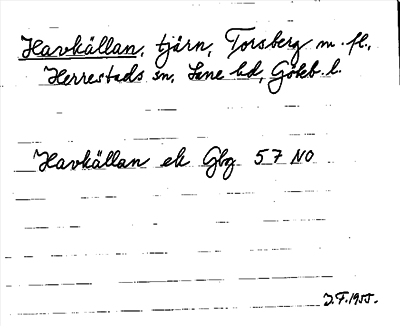 Havkällan, tjärn, Torsberg m. fl.,
Herrestads sn, Lane hd, Göteb. l.
Havkällan ek Gbg 57 NO
J.F. 1955.